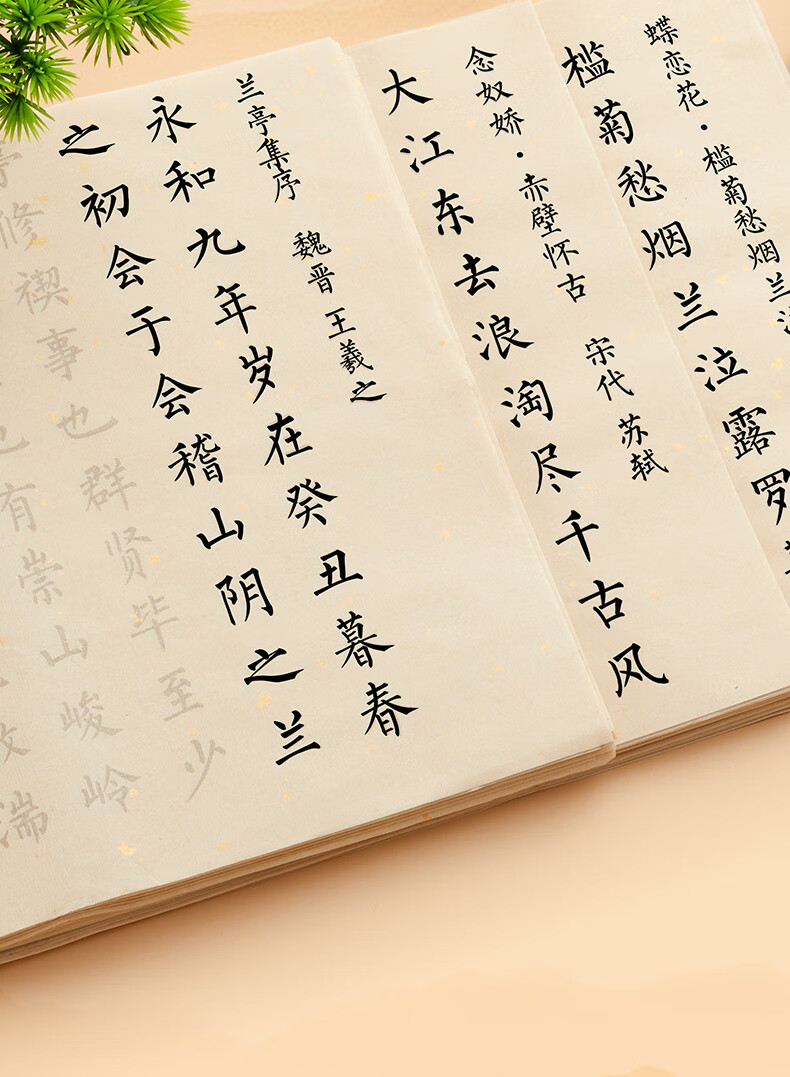 蝶恋花·槛菊愁烟兰
槛菊愁烟兰泣露罗
念奴娇·赤壁怀古 宋代 苏轼
大江东去浪淘尽千古风
兰亭集序 魏晋 王羲之
永和九年岁在癸丑暮春
之初会于会稽山阴之兰
亭修禊事也群贤毕至少
有崇山峻岭
湍